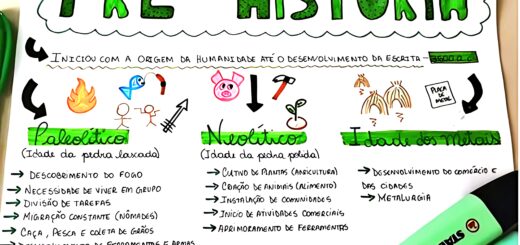 PRÉ HISTÓRIA
INICIOU COM A ORIGEM DA HUMANIDADE ATÉ O DESENVOLVIMENTO DA ESCRITA -
PLACA DE METAL
Paleolítico
(Idade da pedra lascada)
→ DESCOBRIMENTO DO FOGO
→ NECESSIDADE DE VIVER EM GRUPO
→ DIVISÃO DE TAREFAS
→ MIGRAÇÃO CONSTANTE (NÔMADES)
→ CAÇA, PESCA E COLETA DE GRÃOS
Neolítico
(Idade da pedra polida)
→ CULTIVO DE PLANTAS (AGRICULTURA)
→ CRIAÇÃO DE ANIMAIS (ALIMENTO)
→ INSTALAÇÃO DE COMUNIDADES
→ INÍCIO DE ATIVIDADES COMERCIAIS
→ APRIMORAMENTO DE FERRAMENTAS
Idade dos Metais
→ DESENVOLVIMENTO DO COMÉRCIO E
DAS CIDADES
→ METALURGIA